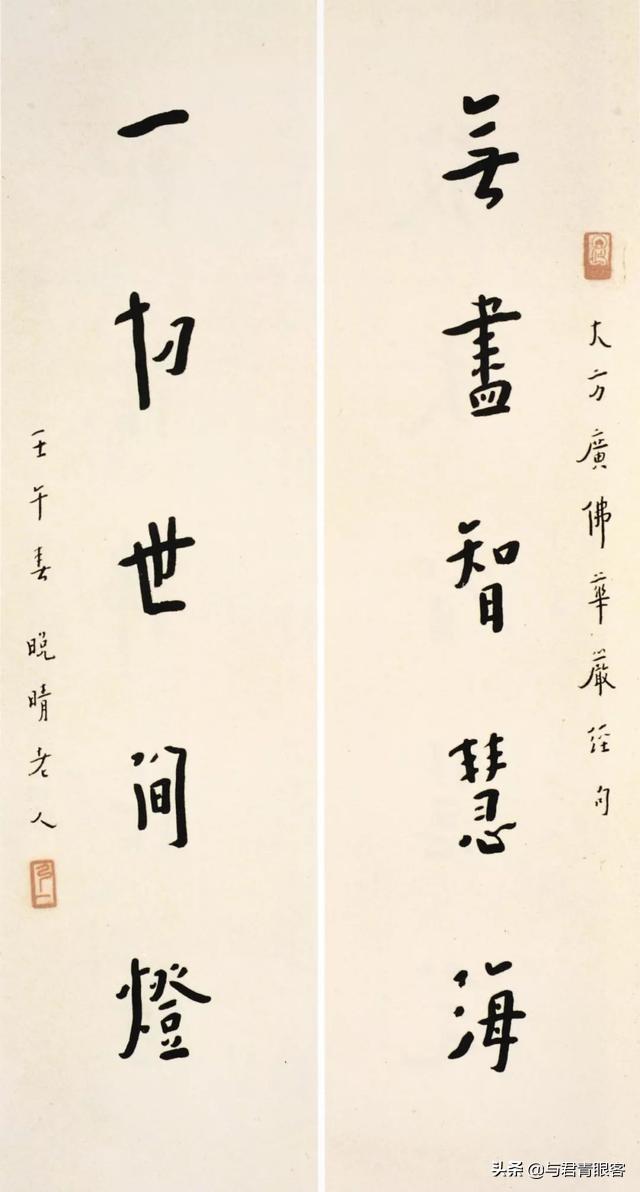 大方廣佛華嚴經句
無盡智慧海
一切世間燈
壬午春 晚晴老人
头条 @与君青眼客